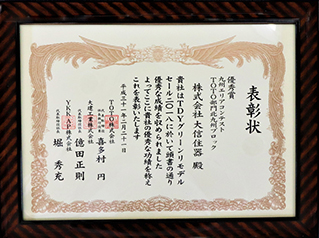 表彰状
優秀賞
九州エリアコンテスト
TOTO部門北九州ブロック
株式会社 大信住器 殿
貴社はTDYグリーンリモデル
セール二〇一八に於いて頭書の通り
優秀な成績を収められました
よってここに貴社の優秀な功績を称え
これを表彰いたします
平成三十一年二月二十一日
TOTO株式会社
喜多村 円
大建工業株式会社
億田正則
YKK AP株式会社
堀 秀充